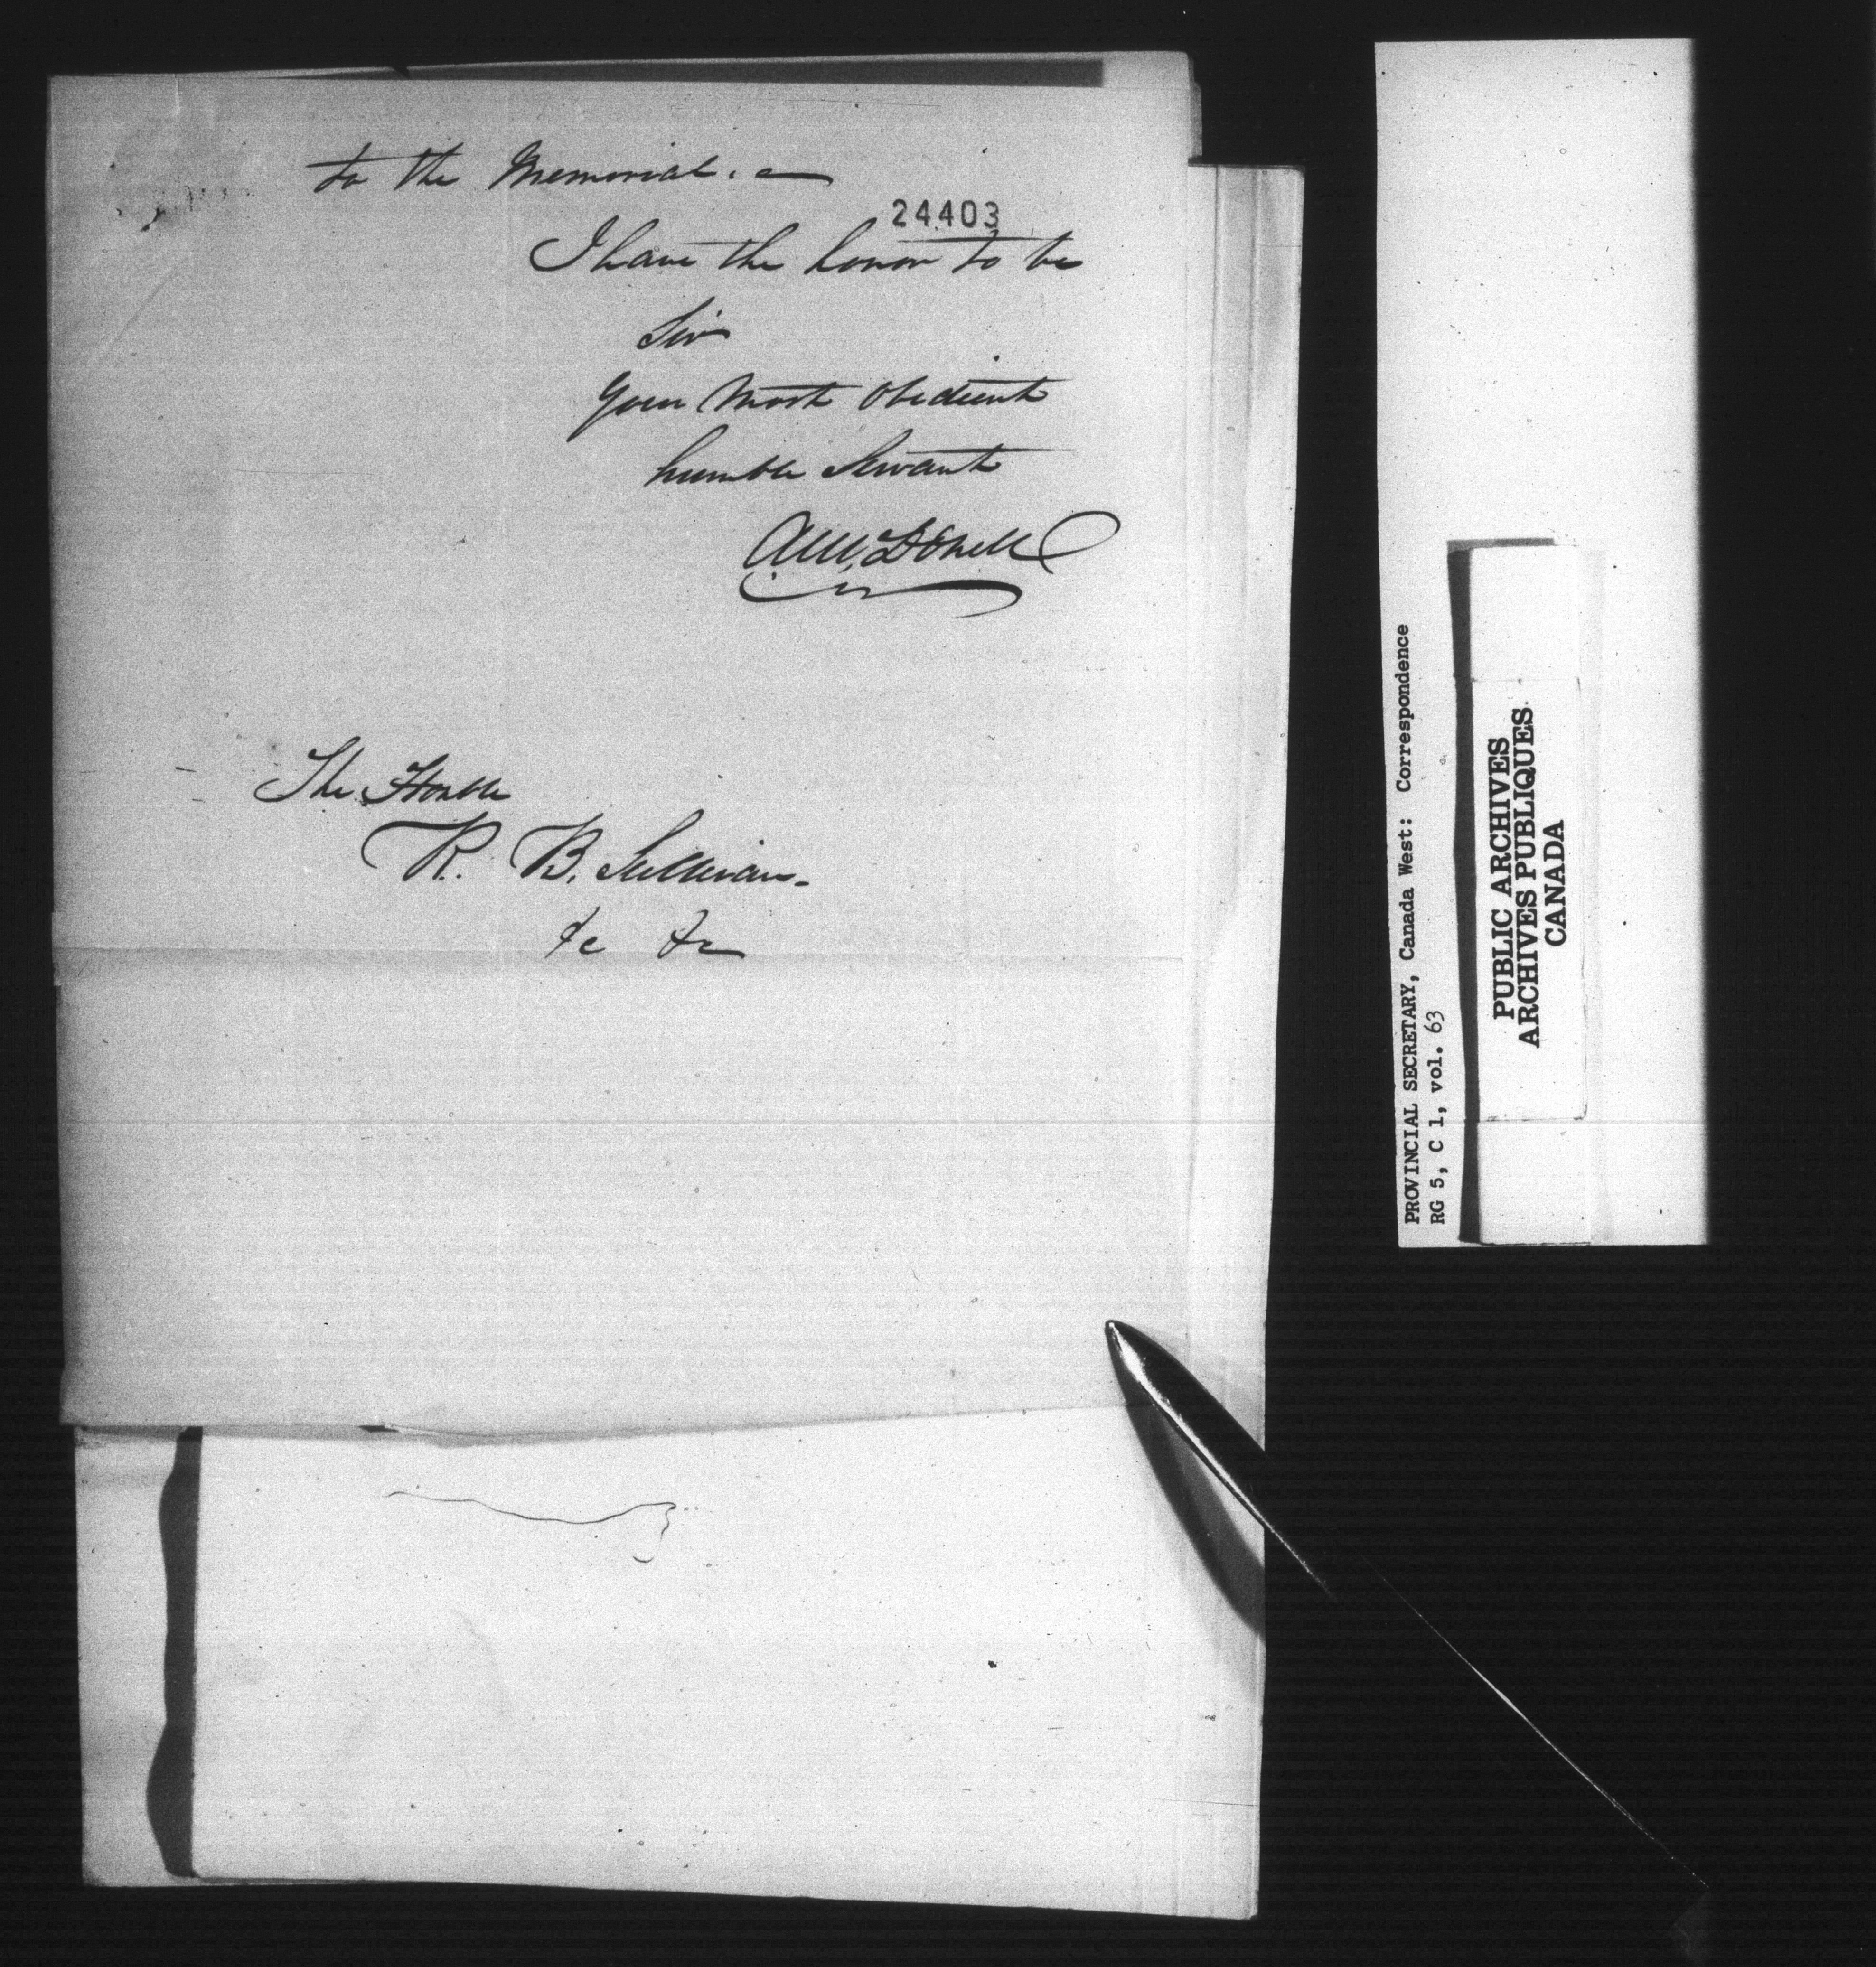 to the Memorial. —
24403
I have the honor to be
Sir
Your Most Obedient
humble Servant
The Honble
R. B. Sullivan.
&c &c
PROVINCIAL SECRETARY, Canada West: Correspondence
RG 5, C 1, vol. 63
PUBLIC ARCHIVES
ARCHIVES PUBLIQUES
CANADA